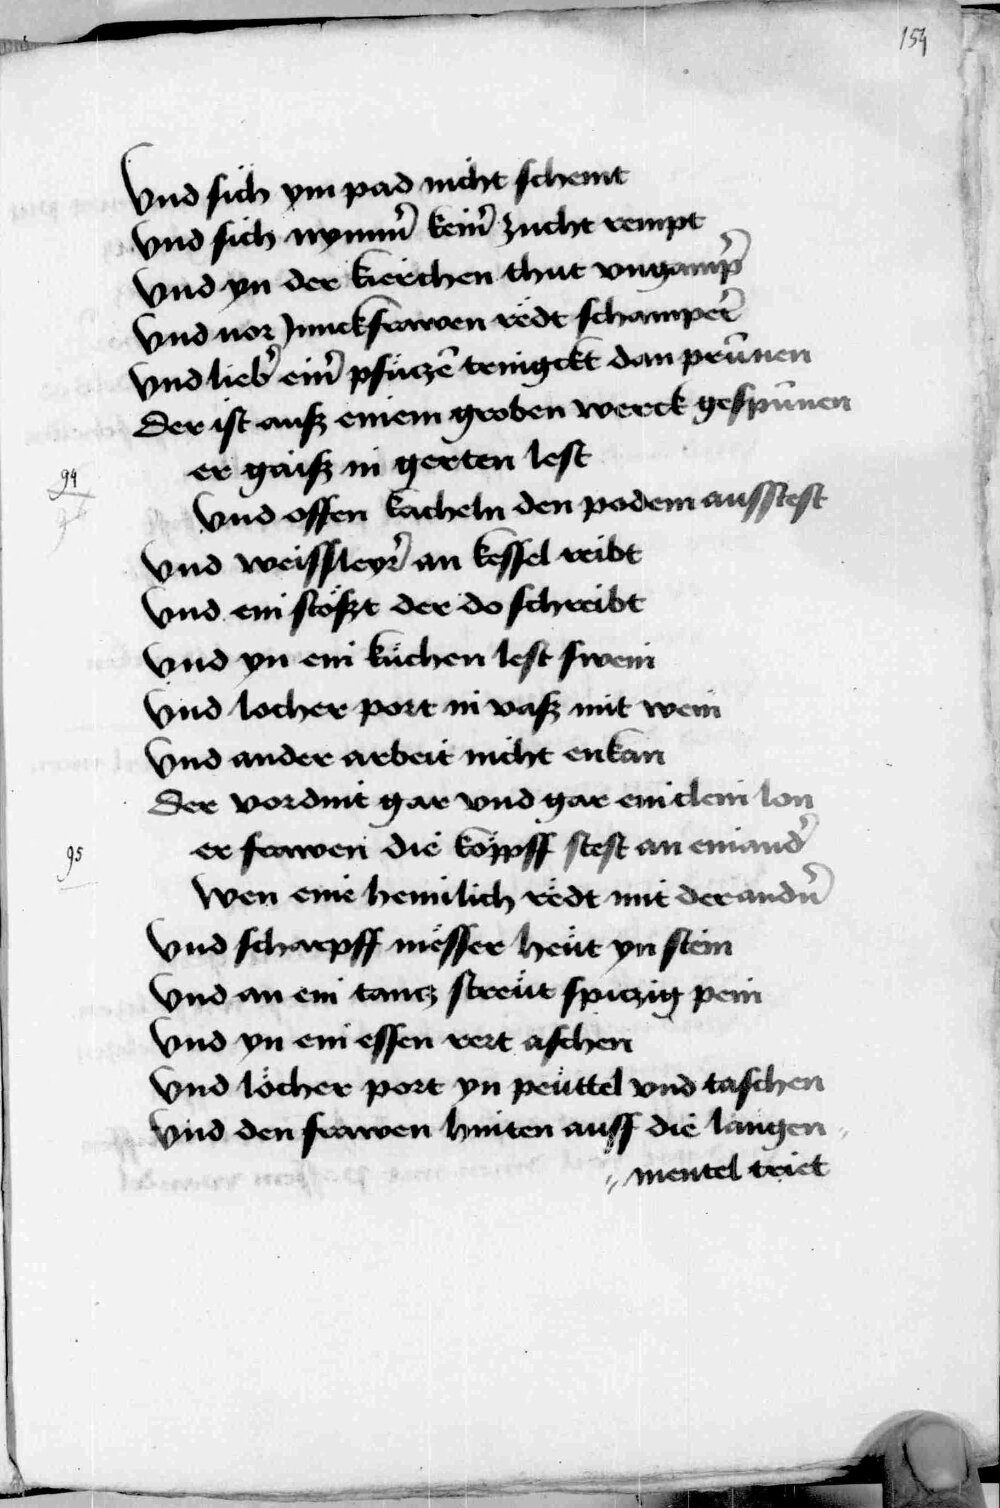 154
Vnd sich ym pad nicht schemt
Vnd sich nymm̄ʼ keinʼ zucht rempt
Vnd yn der kierchen thut vngampʼ
Vnd uor Junckfrawen rëdt schamperʼ
Vnd liebʼ einʼ pfüczē trinigckt dan prūnen
Der ist auß einem groben werck gespūnen
er gaiß in gerten lest
94
Vnd offen kacheln den podem ausstest
Vnd weissleyrʼ an kessel reibt
Vnd ein stößt der do schreibt
Vnd yn ein küchen lest swein
Vnd locher port in vaß mit wein
Vnd ander arbeit nicht enkan
Der vordnit gar vnd gar ein clein lon
95
er frawen die köpff stest an einandʼ
Wen eine heimlich rëdt mit der andnʼ
Vnd scharpff mësser heüt yn stein
Vnd an ein tancz streüt spiczig pein
Vnd yn ein essen rert aschen
Vnd löcher port yn peüttel vnd taschen
Vnd den frawen hinten auff die langen
mentel triet